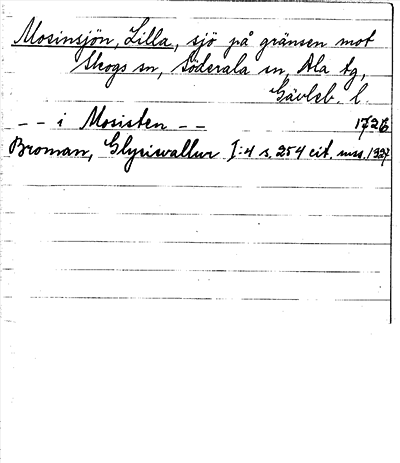 Mosinsjön, Lilla, sjö på gränsen mot
Skogs sn, Söderala sn, Ala tg,
Gävleb. l.
-- i Mosisten -- 1726
Broman, Glysisvallur I:4 s. 254 cit. mss. 1927